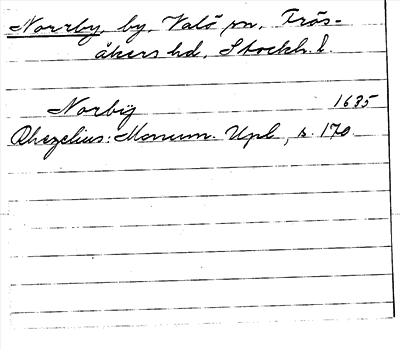 Norrby, by, Valö sn, Frös-
åkers hd, Stockh. l.
Norbÿ 1635
Rhezelius: Monum. Upl., s. 170.